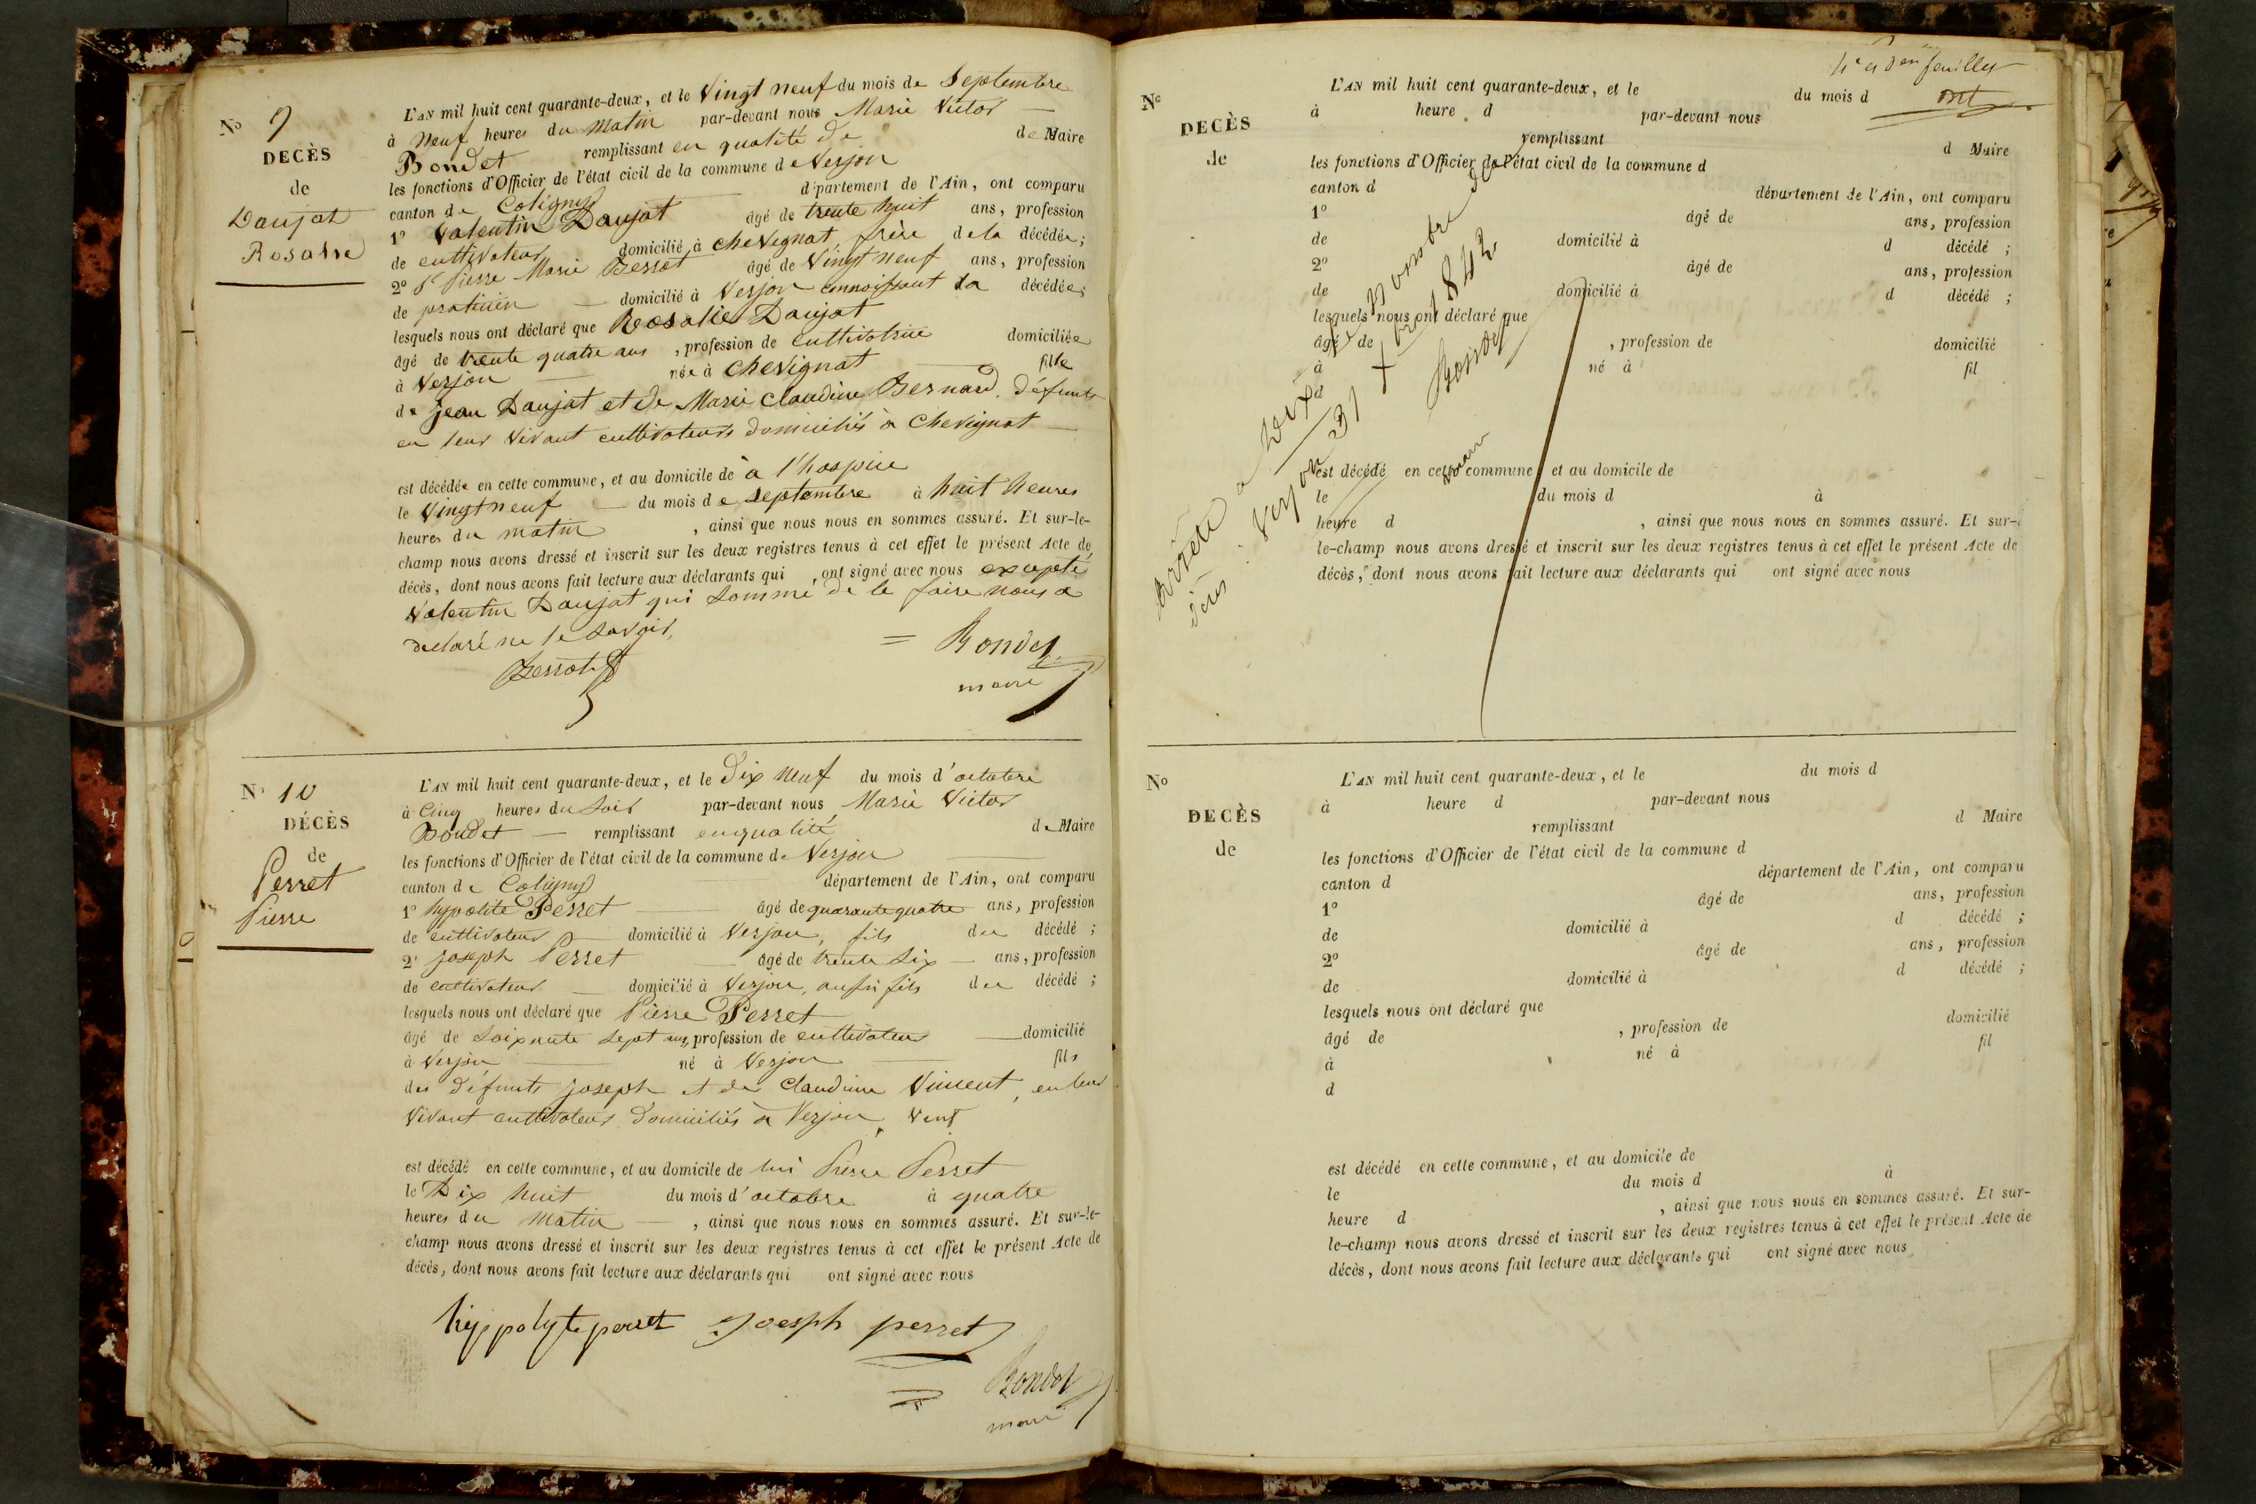 No 9
DECÈS
de
Daujat
Rosalie
L'AN mil huit cent quarante-deux, et le Vingt neuf du mois de Septembre
à Neuf heures du Matin par-devant nous Marie Victor
Bondet remplissant en qualité de de Maire
les fonctions d'Officier de l'état civil de la commune de Verjon
canton de Coligny département de l'Ain, ont comparu
1° Valentin Daujat âgé de trente huit ans, profession
de cultivateur domicilié à Chevignat, frère de la décédée;
2° Sr Pierre Marie Perret âgé de Vingt neuf ans, profession
de praticien domicilié à Verjon connoissant la décédée;
lesquels nous ont déclaré que Rosalie Daujat
âgé de trente quatre ans, profession de cultivatrice domiciliée
à Verjon née à Chevignat fille
de Jean Daujat et de Marie Claudine Bernard, défunts
en leur vivant cultivateurs domiciliés à Chevignat
est décédée en cette commune, et au domicile de à l'hospice
le Vingt neuf du mois de Septembre à huit heures
heures du matin, ainsi que nous nous en sommes assuré. Et sur-le-
champ nous avons dressé et inscrit sur les deux registres tenus à cet effet le présent Acte de
décès, dont nous avons fait lecture aux déclarants qui, ont signé avec nous excepté
Valentin Daujat qui sommé de le faire nous a
déclaré ne le savoir,
Bondet
maire
No 10
DÉCÈS
de
Perret
Pierre
L'AN mil huit cent quarante-deux, et le Dix neuf du mois d'octobre
à Cinq heures du Soir par-devant nous Marie Victor
Bondet remplissant en qualité de Maire
les fonctions d'Officier de l'état civil de la commune de Verjon
canton de Coligny département de l'Ain, ont comparu
1° hypolite Perret âgé de quarante quatre ans, profession
de cultivateur domicilié à Verjon, fils du décédé;
2° Joseph Perret âgé de trente six ans, profession
de cultivateur domicilié à Verjon, aussi fils du décédé;
lesquels nous ont déclaré que Pierre Perret
âgé de soixante sept ans, profession de cultivateur domicilié
à Verjon né à Verjon fils
des défunts Joseph et de Claudine Vincent, en leur
vivant cultivateurs domiciliés à Verjon, veuf
est décédé en cette commune, et au domicile de lui Pierre Perret
le Dix huit du mois d'octobre à quatre
heures du Matin, ainsi que nous nous en sommes assuré. Et sur-le-
champ nous avons dressé et inscrit sur les deux registres tenus à cet effet le présent Acte de
décès, dont nous avons fait lecture aux déclarants qui ont signé avec nous
hyppolyte perret Joesph perret
Bondet
maire
feuillet
No
DECÈS
de
L'AN mil huit cent quarante-deux, et le du mois d
à heure d par-devant nous
remplissant d Maire
les fonctions d'Officier de l'état civil de la commune d
canton d département de l'Ain, ont comparu
1° âgé de ans, profession
de domicilié à d décédé ;
2° âgé de ans, profession
de domicilié à d décédé ;
lesquels nous ont déclaré que
âgé de , profession de domicilié
à né à fil
d
est décédé en cette commune, et au domicile de
le du mois d à
heure d , ainsi que nous nous en sommes assuré. Et sur-
le-champ nous avons dressé et inscrit sur les deux registres tenus à cet effet le présent Acte de
décès, dont nous avons fait lecture aux déclarants qui ont signé avec nous
arrêté à Dix le nombre de
décès. Verjon 31 Xbre 1842.
Bondet
maire
No
DECÈS
de
L'AN mil huit cent quarante-deux, et le du mois d
à heure d par-devant nous
remplissant d Maire
les fonctions d'Officier de l'état civil de la commune d
canton d département de l'Ain, ont comparu
1° âgé de ans, profession
de domicilié à d décédé ;
2° âgé de ans, profession
de domicilié à d décédé ;
lesquels nous ont déclaré que
âgé de , profession de domicilié
à né à fil
d
est décédé en cette commune, et au domicile de
le du mois d à
heure d , ainsi que nous nous en sommes assuré. Et sur-
le-champ nous avons dressé et inscrit sur les deux registres tenus à cet effet le présent Acte de
décès, dont nous avons fait lecture aux déclarants qui ont signé avec nous